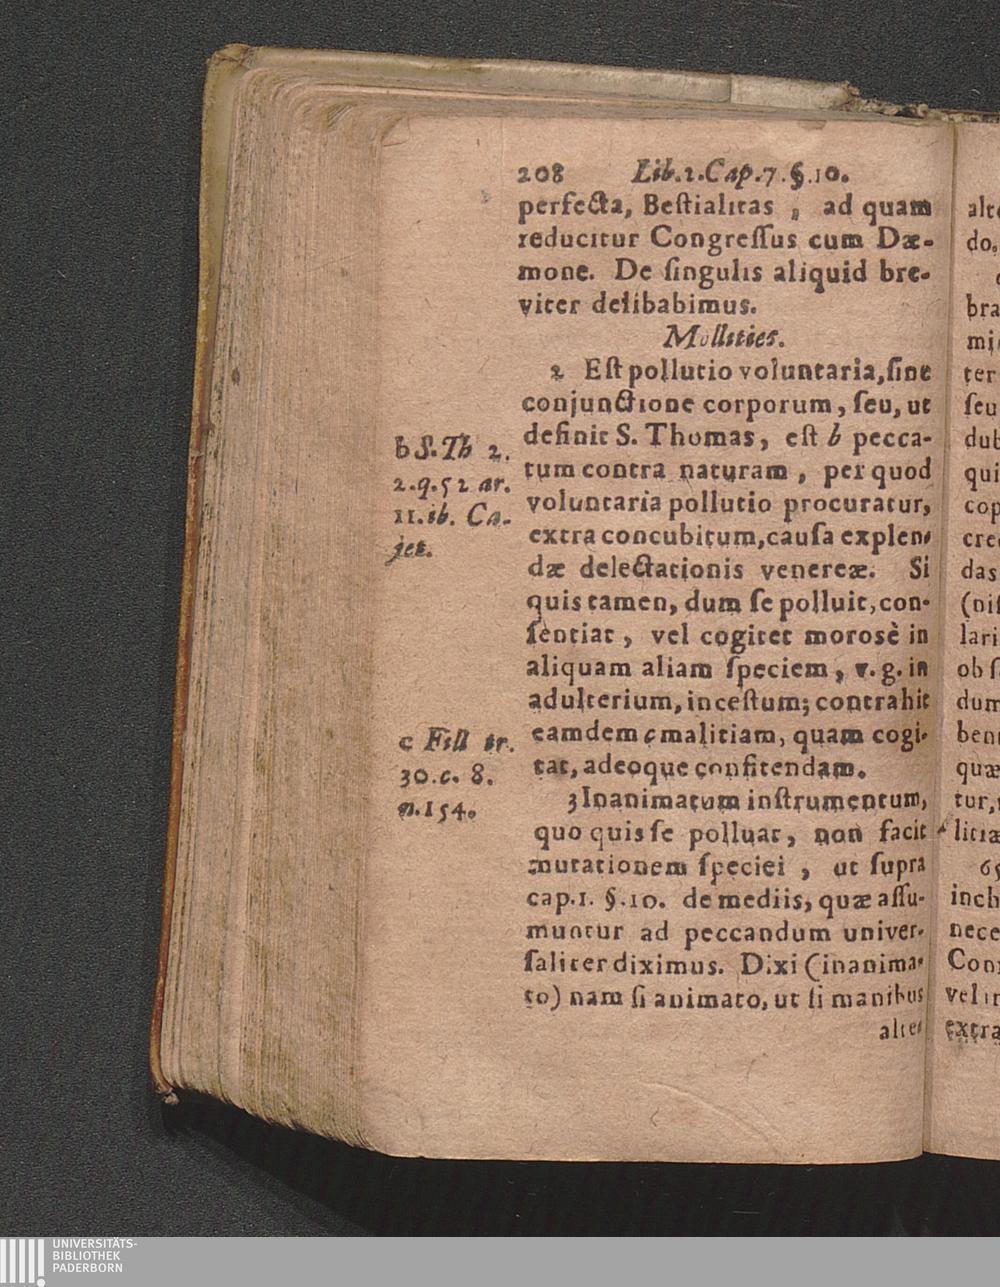 208 Lib.2.Cap.7.§.10.
perfecta, Beſtialitas, ad quam
reducitur Congreſſus cum Dæ-
mone. De ſingulis aliquid bre-
viter delibabimus.
Mollities.
2 Eſt pollutio voluntaria, ſine
conjunctione corporum, ſeu, ut
definit S. Thomas, eſt b pecca-
tum contra naturam, per quod
voluntaria pollutio procuratur,
extra concubitum, cauſa explen-
dæ delectationis venereæ. Si
quis tamen, dum ſe polluit, con-
ſentiat, vel cogitet morosè in
aliquam aliam ſpeciem, v.g. in
adulterium, inceſtum; contrahit
eamdem c malitiam, quam cogi-
tat, adeoque confitendam.
3 Inanimatum inſtrumentum,
quo quis ſe polluat, non facit
mutationem ſpeciei, ut ſupra
cap.1. §.10. de mediis, quæ aſſu-
muntur ad peccandum univer-
ſaliter diximus. Dixi (inanima-
to) nam ſi animato, ut ſi manibus
alte-
b S. Th 2.
2.q.52 ar.
11.ib. Ca-
jet.
c Fill tr.
30.c. 8.
n.154.
do,
bra
ter
ſeu
qui
das
lari
ob ſ
dum
quæ
tur,
litiæ
vel
extra
UNIVERSITÄTS-
BIBLIOTHEK
PADERBORN